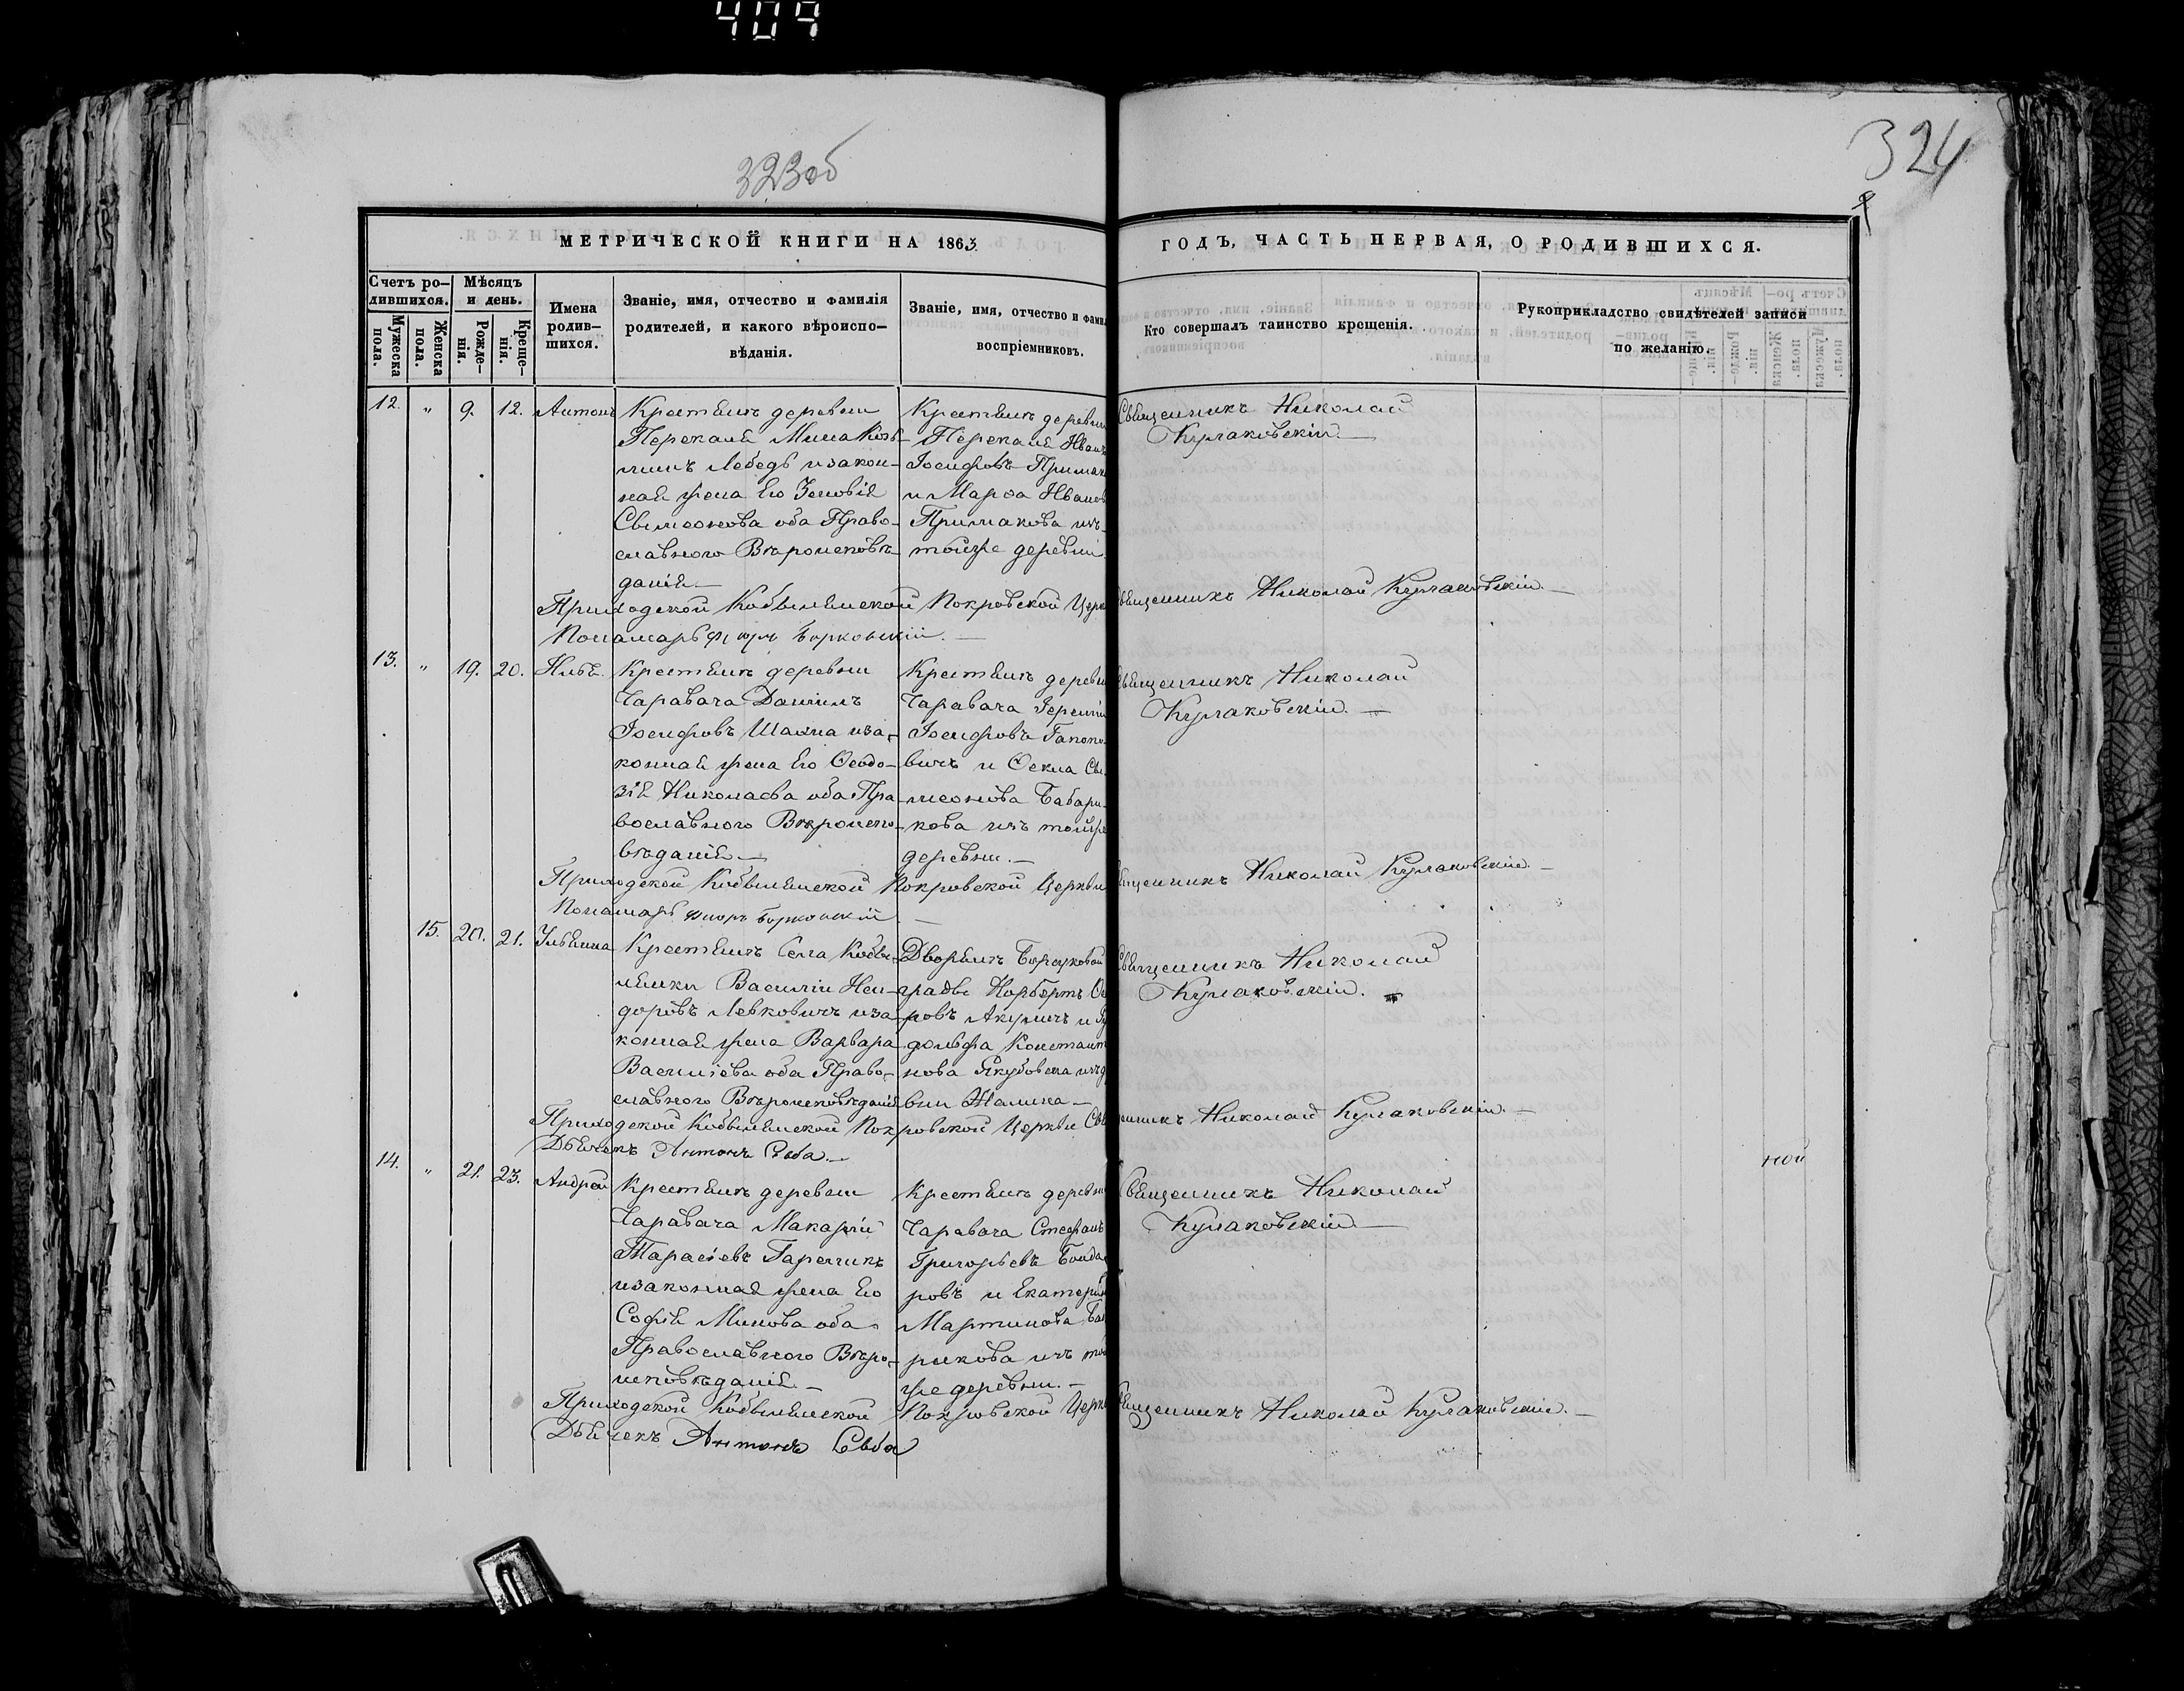 409
323об
324
МЕТРИЧЕСКОЙ КНИГИ НА 1863
ГОДЪ, ЧАСТЬ ПЕРВАЯ, О РОДИВШИХСЯ.
Счетъ ро-
дившихся.
Мужеска пола.
Женска пола.
Мѣсяцъ
и день.
Рожде-
нія.
Креще-
нія.
Имена
родив-
шихся.
Званіе, имя, отчество и фамилія
родителей, и какого вѣроиспо-
вѣданія.
Званіе, имя, отчество и фами
воспріемниковъ.
Кто совершалъ таинство крещенія.
Рукоприкладство свидѣтелей записи
по желанію.
12. " 9. 12. Антонъ
Крестьянъ деревни
Перекаля Мина
Лебедь и закон-
ная жена его Зеновія
Сымеонова оба Право-
славнаго Вѣроисповѣ-
данія
Крестьянъ деревни
Перекаля Иванъ
Іосифовъ Примак
и Марѳа Иванов
Примакова изъ
тойже деревни.
Священникъ Николай
Кулаковскій.
Приходской Кобыльянской Покровской Церк
Священникъ Николай Кулаковскій.
Пономарь Борковскій.
13. " 19. 20. Илья.
Крестьянъ деревни
Чаравача Даніилъ
Іосифовъ и за-
конная жена его Ѳеодо-
зія Николаева оба Пра-
вославнаго Вѣроиспо-
вѣданія
Крестьянъ деревни
Чаравача
Іосифовъ Гапоно-
вичъ и Ѳекла Сы-
меонова Бабари-
кова изъ тойже
деревни.
Священникъ Николай
Кулаковскій.
Приходской Кобыльянской Покровской Церкви
Священникъ Николай Кулаковскій.
Пономарь Борковскій
15. 20. 21. Ульянна
Крестьянъ Села Кобы-
лянки Василій Иси-
доровъ Левковичъ и за-
конная жена Варвара
Василіева оба Право-
славнаго Вѣроисповѣданія
Дворянъ
Норбертъ
ровъ Акуличъ и
Констант
нова
вни
Священникъ Николай
Кулаковскій.
Приходской Кобыльянской Покровской Церкви Свя
щенникъ Николай Кулаковскій.
Дьячекъ Антонъ Сыба.
14. " 21. 23. Андрей
Крестьянъ деревни
Чаравача Макарій
Тарасіевъ
и законная жена его
Софія Минова оба
Православнаго Вѣро-
исповѣданія
Крестьянъ деревни
Чаравача Стефанъ
Григорьевъ Бонда
ровъ и Екатерин
Мартинова Баб
рикова изъ той
же деревни.
Священникъ Николай
Кулаковскій
Приходской Кобыльянской Покровской Церкв
Священникъ Николай Кулаковскій.
Дьячекъ Антонъ Сыба
ной